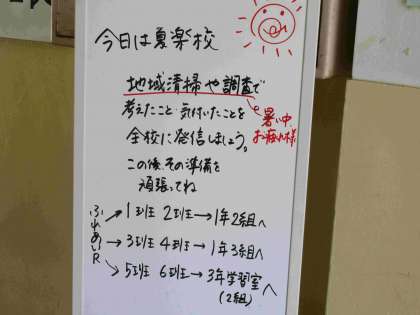 今日は夏楽校
地域清掃や調査で
暑い中、
お疲れ様
考えたこと・気付いたことを
全校に発信しましょう。
この後、その準備を
頑張ってね
ふれあいR
→1班 2班→1年2組へ
→3班 4班→1年3組へ
→5班 6班→3年学習室へ
(2組)